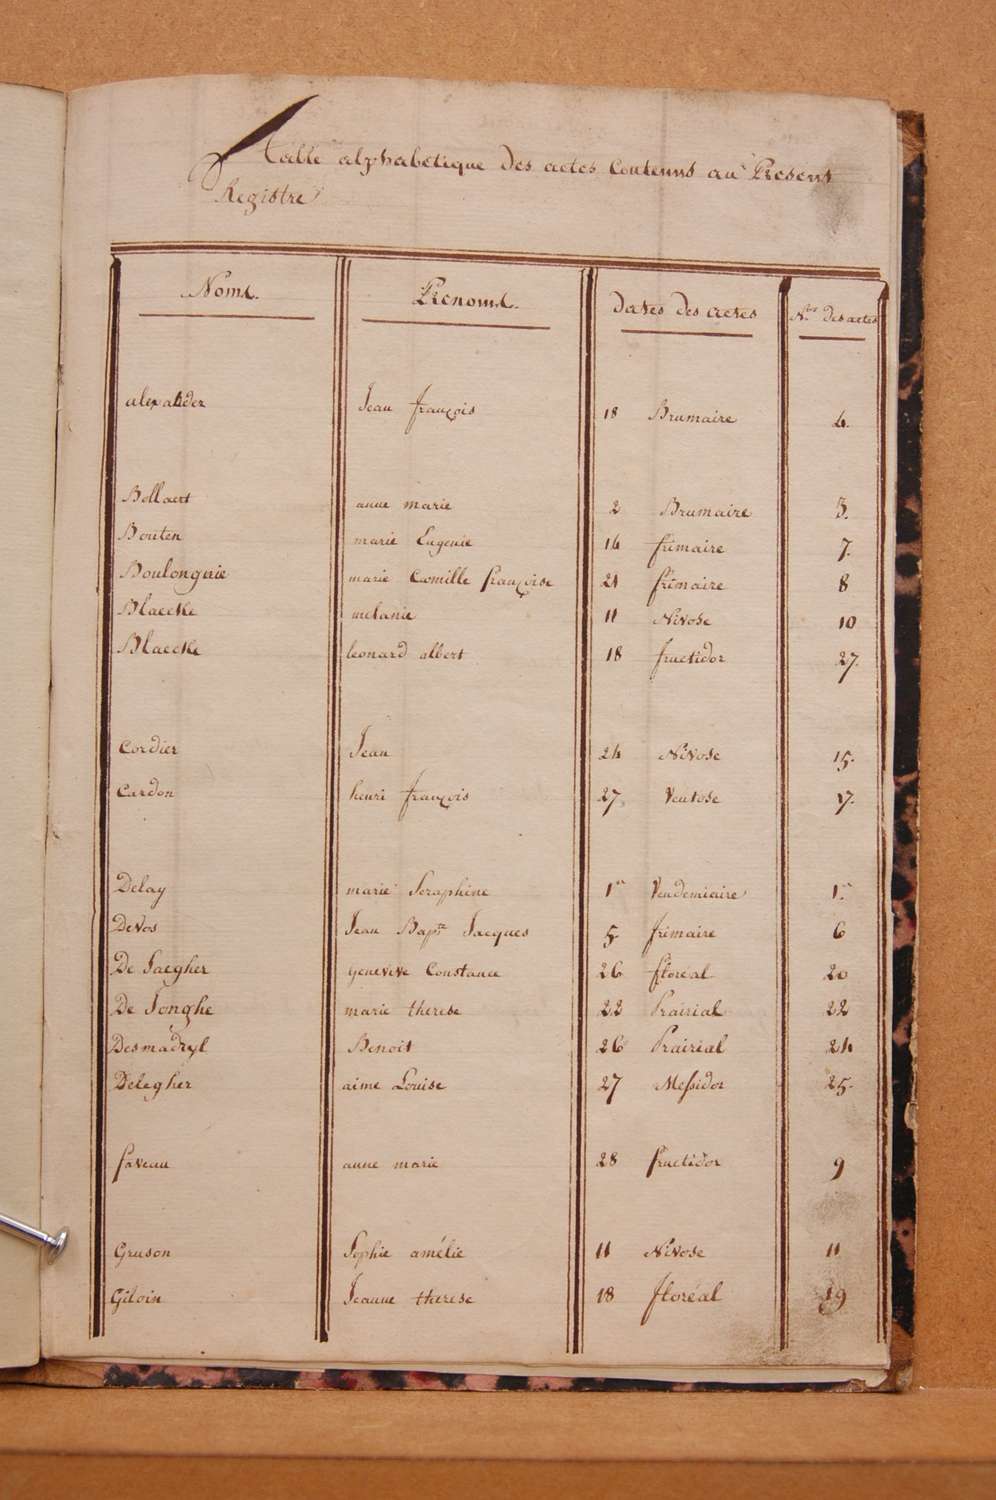 Table alphabetique des actes Contenus au Present
Registre
Noms. Prenoms. Dates des actes Nos. des actes
alexander Jean françois 18 Brumaire 4.
Bollaert anne marie 2 Brumaire 3.
Bouten marie Eugenie 16 frimaire 7.
Boulongnie marie Camille françoise 21 frimaire 8
Blaecke melanie 11 Nivose 10
Blaecke leonard albert 18 fructidor 27.
Cordier Jean 24 Nivose 15.
Cardon henri françois 27 Ventose 17.
Delay marie Seraphine 1er Vendemiaire 1er
Devos Jean Bapte Jacques 5 frimaire 6
De Jaegher genevieve Constance 26 floréal 20
De Jonghe marie therese 22 Prairial 22
Desmadryl Benoit 26 Prairial 24
Delegher aime Louise 27 Messidor 25.
faveau anne marie 28 fructidor 9
Gruson Sophie amélie 11 Nivose 11
Giloin Jeanne therese 18 floréal 19